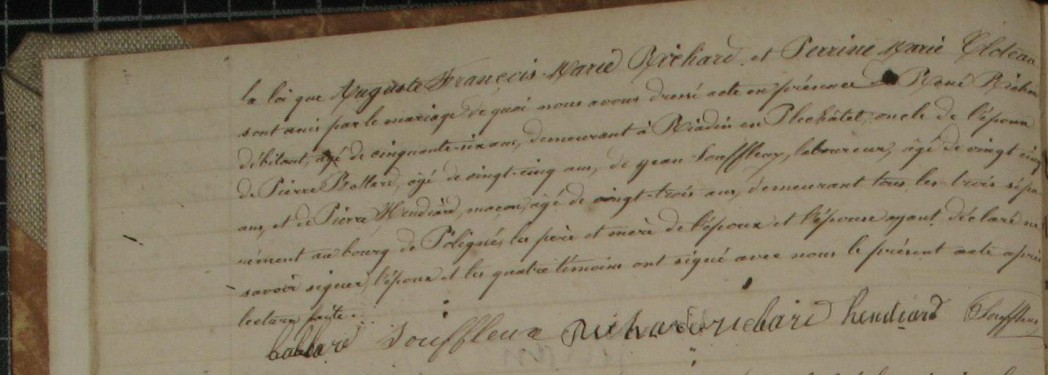 la loi que Auguste François Marie Richard et Perrine Marie
sont unis par le mariage de quoi nous avons dressé acte en présence de René Richard
débitant, âgé de cinquante-six ans, demeurant à en Plechâtel, oncle de l'époux
de Pierre âgé de vingt-cinq ans, de Jean Souffleux, laboureur, âgé de vingt cinq
ans, et de Pierre Hendiard, maçon, âgé de vingt-trois ans, demeurant tous les trois sépa-
rément au bourg de Poligné, les père et mère de l'époux et l'épouse ayant déclaré ne
savoir signer, l'époux et les quatre témoins ont signé avec nous le présent acte après
lecture faite.
Souffleux Richard richard hendiard